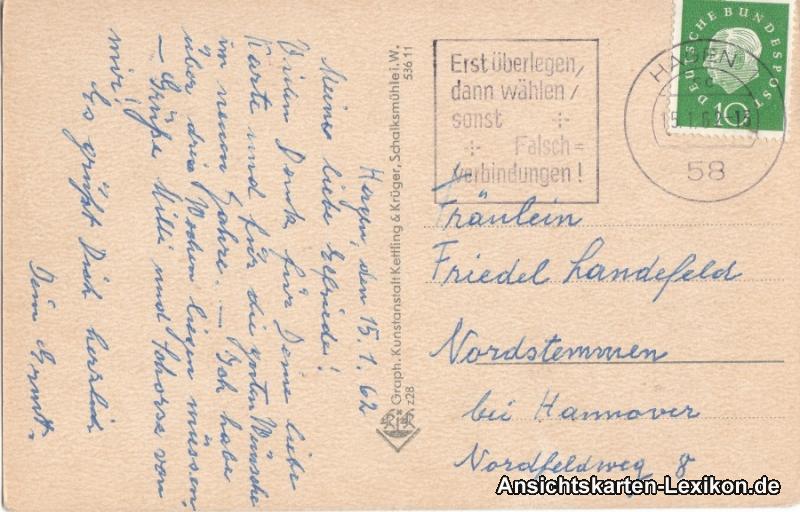 Hagen, den 15.1.62
Meine liebe
Vielen Dank für Deine liebe
Karte und für die guten Wünsche
im neuen Jahre. – Ich habe
über drei Wochen liegen müssen.
– Grüße Milli und von
mir!
Es grüßt Dich herzlich
Dein Ernst.
53611
Graph. Kunstanstalt Kettling & Krüger, Schalksmühle i.W.
z28
KRÜ
Erst überlegen,
dann wählen,
sonst
Falsch=
verbindungen!
HAGEN
15.1.62
58
DEUTSCHE BUNDESPOST
10
Fräulein
Friedel Landefeld
Nordstemmen
bei Hannover
Nordfeldweg 8
Ansichtskarten-Lexikon.de